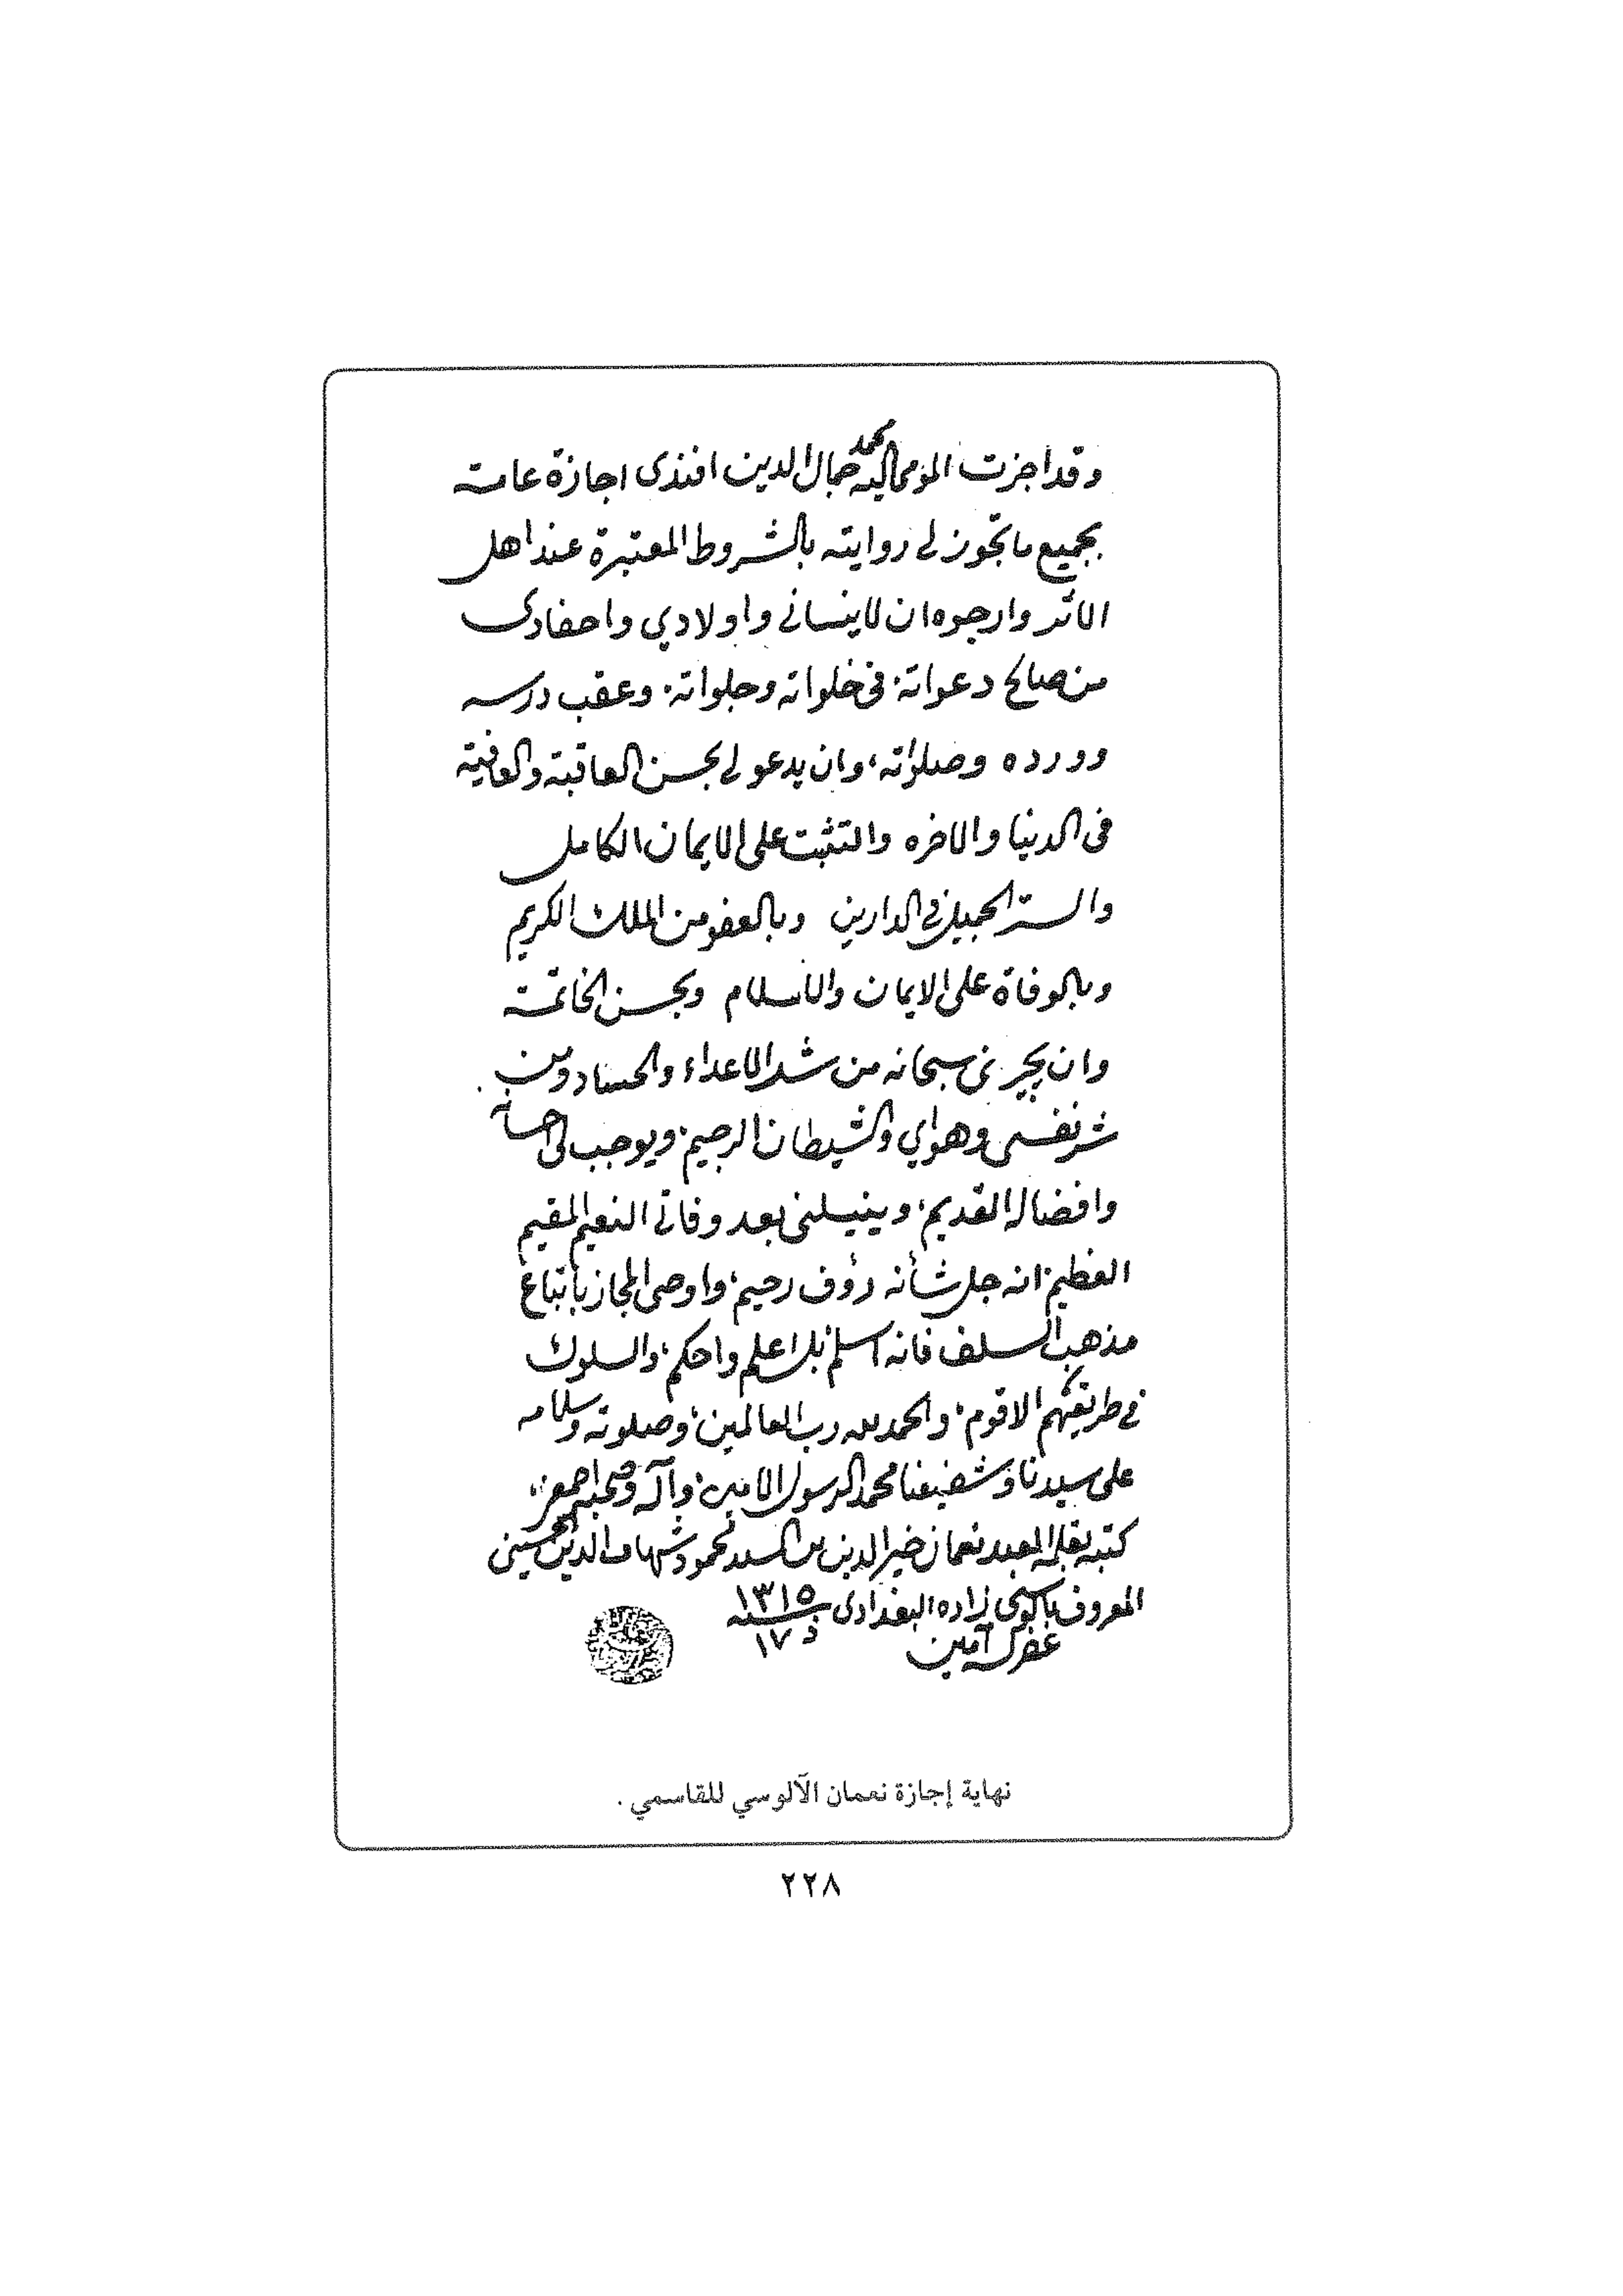 وقد اجزت المومى اليه محمد جمال الدين افندى اجازة عامة
بجميع ما تجوز لي روايته بالشروط المعتبرة عند اهل
الاثر وارجوه ان لا ينسانى واولادي واحفادى
من صالح دعواته . في خلواته وجلواته . وعقب درسه
وورده وصلواته ، وان يدعو لي بحسن العاقبة والعافية
فى الدنيا والاخره والتثبت على الايمان الكامل
والستر الجميل في الدارين وبالعفو من الملك الكريم
وبالوفاة على الايمان والاسلام وبحسن الخاتمة
وان يجيرنى سبحانه من شر الاعداء والحساد ومن
شر نفسى وهواي والشيطان الرجيم . ويوجب لى احسانه
وافضاله القديم ، وينيلنى بعد وفاتى النعيم المقيم
العظيم . انه جل شأنه رؤف رحيم ، واوصى المجاز باتباع
مذهب السلف فانه اسلم ، بل اعلم واحكم ، والسلوك
في طريقهم الاقوم ، والحمد لله رب العالمين ، وصلوته وسلامه
على سيدنا وشفيعنا محمد الرسول الامين . وآله وصحبه اجمعين ،
كتبه بقلمه العبد نعمان خير الدين بن السيد محمود شهاب الدين الحسينى
المعروف بآلوسى زاده البغدادى سنة ١٣١٥
غفر له آمين ١٧ ذ
نهاية إجازة نعمان الآلوسي للقاسمي .
٢٢٨